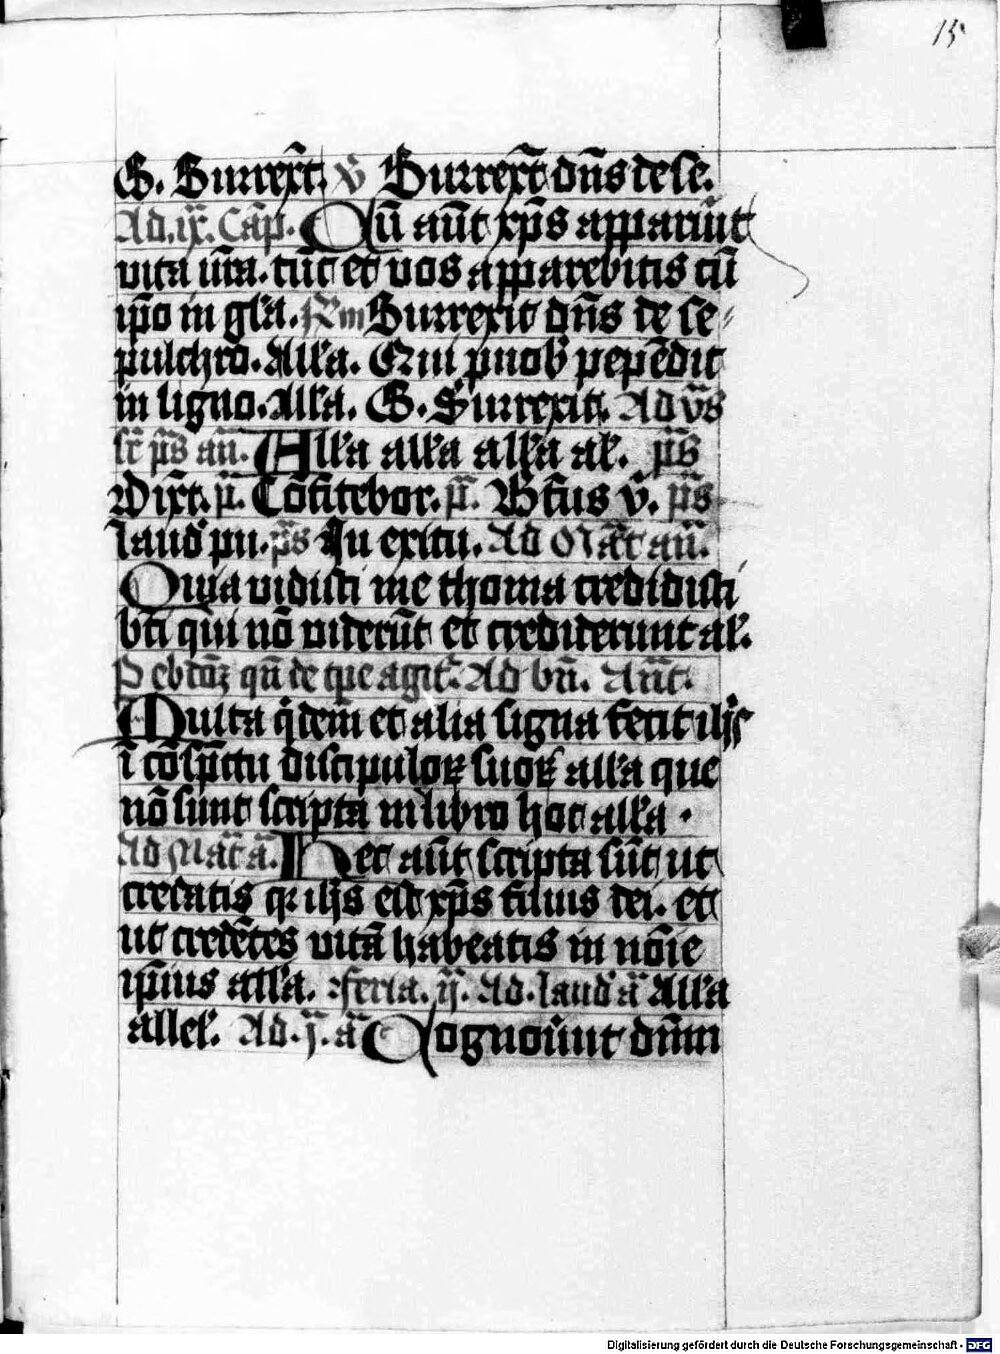 15
G. Surrex̄t. v̄ Surrex̄t dn̄s de se.
Ad .ix. Cap̄. Cū aūt xp̄s apparūit
vita vr̄a. tūc et vos apparebitis cū
ip̄o in gl̄a. Rm Surrexit dn̄s de se
pulchro. All̄a. Qui p nob̄ pepēdit
in ligno. all̄a. G. Surrexit. Ad vs̄
sc̄ ps̄ an̄. All̄a all̄a all̄a al̄. ps̄
Dix̄t. p̄. Cōfitebor. p̄. Bt̄us v̄. ps̄
Laud̄ pu. ps̄ In exitu. Ad Māt an̄.
Quia vidisti me thoma credidisti
bt̄i qui nō viderūt et crediderunt al̄.
Ad bn̄. Ant̄.
Multa q̄dem et alia signa fecit ih̄s
ī cōsp̄ctu discipuloꝝ suoꝝ all̄a que
nō sunt scripta in libro hoc all̄a .
Ad Mat̄ ā. Hec aūt scripta sūt ut
credatis qꝛ ih̄s est xp̄s filius dei. et
ut credētes vitā habeatis in nōie
ip̄ius all̄a. feria. ij. Ad. laud̄ ā All̄a
allel̄. Ad .j. ā Cognoūunt dn̄m
Digitalisierung gefördert durch die Deutsche Forschungsgemeinschaft - DFG